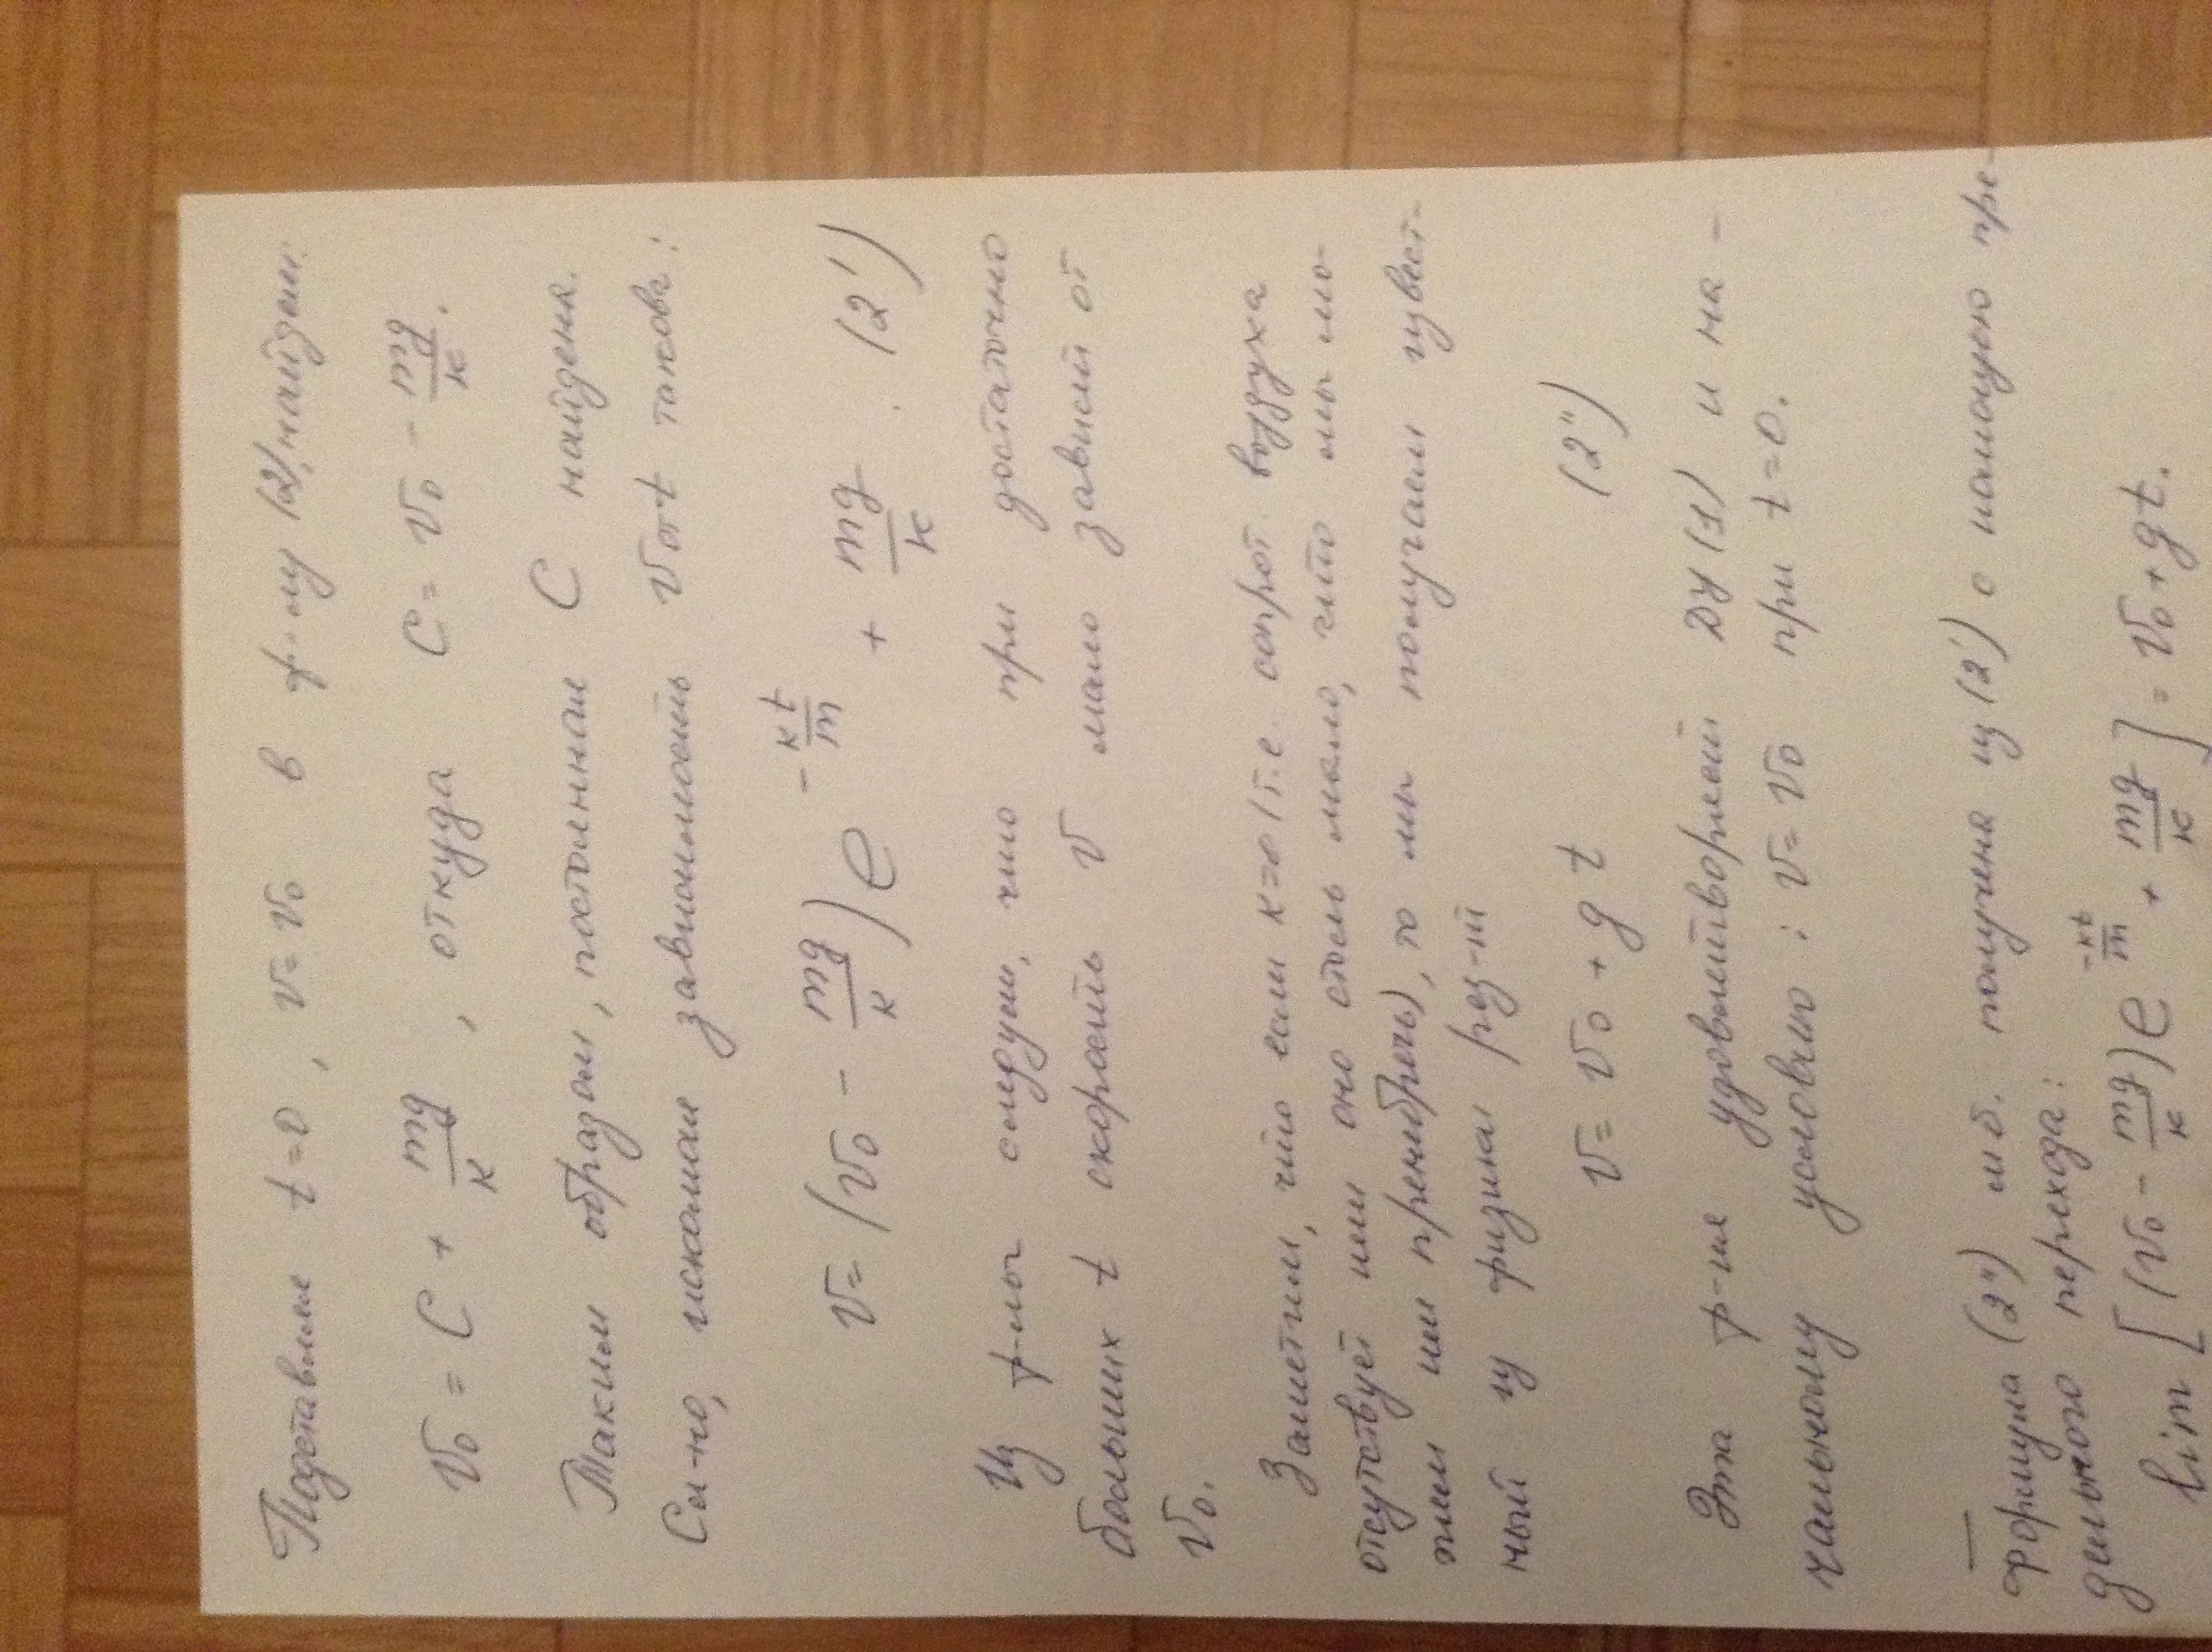 Подставляя t=0, v=v₀ в ф-лу (2), найдем:
v₀ = C + mg/к, откуда C = v₀ - mg/к.
Таким образом, постоянная C найдена.
Сл-но, искомая зависимость v от t такова:
v = (v₀ - mg/к) e^(-кt/m) + mg/к. (2')
Из ф-лы следует, что при достаточно
больших t скорость v мало зависит от
v₀.
Заметим, что если к=0 (т.е. сопрот. воздуха
отсутствует или оно столь мало, что мы мо-
жем им пренебречь), то мы получаем извест-
ный из физики рез-т
v = v₀ + gt (2'')
Эта ф-ия удовлетворяет ДУ (1) и на-
чальному условию: v = v₀ при t=0.
Формула (2'') м.б. получена из (2') с помощью пре-
дельного перехода:
lim [(v₀ - mg/к) e^(-кt/m) + mg/к] = v₀ + gt.